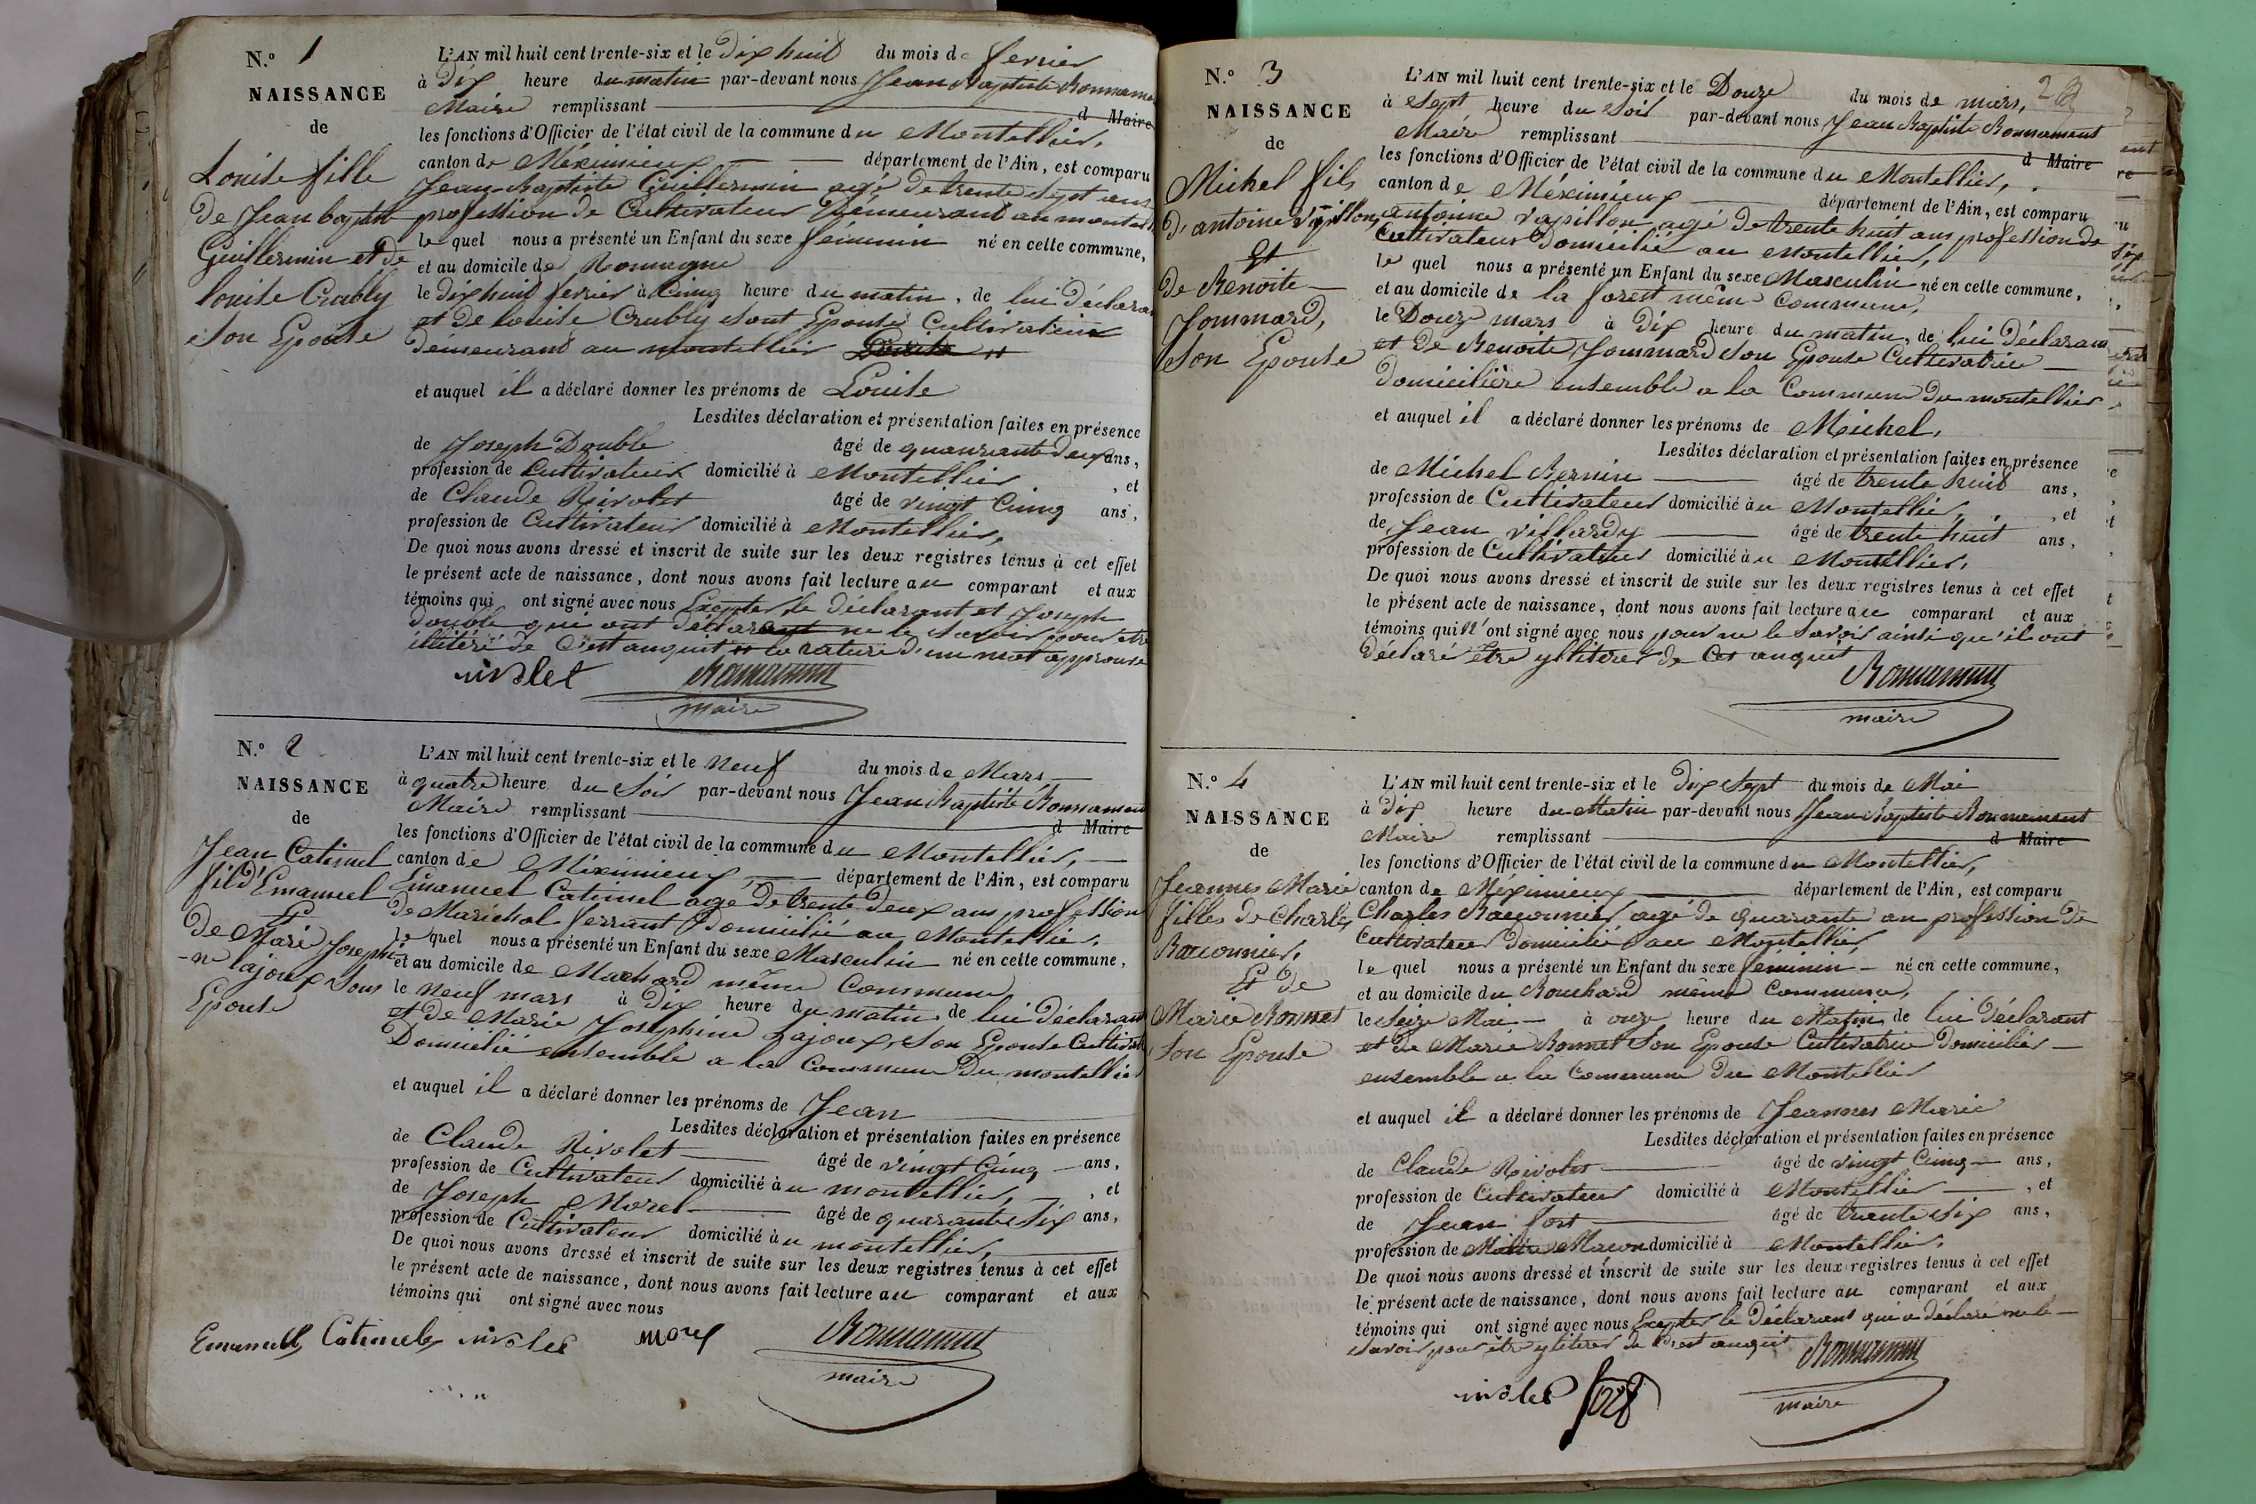 N.º 1
NAISSANCE
de
Louise fille
de Jean baptist
Guillermin et de
louise Crubly
son Epouse
L'AN mil huit cent trente-six et le dix huit du mois de fevrier
à dix heure du matin par-devant nous Jean Baptiste Bonnamen
Maire remplissant d Maire
les fonctions d'Officier de l'état civil de la commune du Montellier,
canton de Méximieux département de l'Ain, est comparu
Jean Baptiste Guillermin agé de trente sept ans
profession de Cultivateur demeurant au montell
le quel nous a présenté un Enfant du sexe féminin né en cette commune,
et au domicile de Romagne
le dix huit fevrier à Cinq heure du matin, de lui déclaran
et de louise Crubly sont Epouse Cultivatrice
demeurant au montellier
et auquel il a déclaré donner les prénoms de Louise
Lesdites déclaration et présentation faites en présence
de Joseph Double âgé de quaurante deux ans,
profession de Cultivateur domicilié à Montellier, et
de Claude Rivolet âgé de vingt Cinq ans,
profession de Cultivateur domicilié à Montellier,
De quoi nous avons dressé et inscrit de suite sur les deux registres tenus à cet effet
le présent acte de naissance, dont nous avons fait lecture au comparant et aux
témoins qui ont signé avec nous Excepter le déclarant et Joseph
double qui ont déclarant ne le savoir pour etre
illitéré de C'est auquit la rature d'un mot approuvé
rivolet Bonnament
maire
N.º 2
NAISSANCE
de
Jean Catinel
fil d'Emanuel
et
de Marie Joseph
-ne lajoux Sous
Epouse
L'AN mil huit cent trente-six et le neuf du mois de Mars
à quatre heure du soir par-devant nous Jean Baptiste Bonnamen
Maire remplissant d Maire
les fonctions d'Officier de l'état civil de la commune du Montellier,
canton de Méximieux, département de l'Ain, est comparu
Emanuel Catinel age de trente deux ans profession
de Maréchal ferrant domicilié au Montellier,
le quel nous a présenté un Enfant du sexe Masculin né en cette commune,
et au domicile de Machard même Commune
le neuf mars à dix heure du matin, de lui déclaran
et de Marie Josephine Lajoux, son Epouse Cultivat
Domicilié ensemble a la Commune du montellier
et auquel il a déclaré donner les prénoms de Jean
Lesdites déclaration et présentation faites en présence
de Claude Rivolet âgé de vingt Cinq ans,
profession de Cultivateur domicilié au montellier, et
de Joseph Morel âgé de quarante six ans,
profession de Cultivateur domicilié au montellier,
De quoi nous avons dressé et inscrit de suite sur les deux registres tenus à cet effet
le présent acte de naissance, dont nous avons fait lecture au comparant et aux
témoins qui ont signé avec nous
Emanuel Catinel rivolet morel Bonnament
maire
28
N.º 3
NAISSANCE
de
Michel fils
d'antoine vapillon
et
de Benoite
Jommard,
Son Epouse
L'AN mil huit cent trente-six et le Douze du mois de mars,
à Sept heure du soir par-devant nous Jean Baptiste Bonnament
Maire remplissant d Maire
les fonctions d'Officier de l'état civil de la commune du Montellier,
canton de Méximieux département de l'Ain, est comparu
antoine vapillon agé de trente huit ans profession de
Cultivateur Domicilié au Montellier,
le quel nous a présenté un Enfant du sexe Masculin né en cette commune,
et au domicile de la forest même Commune,
le Douze mars à dix heure du matin, de lui déclaran
et de Benoite Jommard son Epouse Cultivatrice
domicilière ensemble a la Commune du montellier
et auquel il a déclaré donner les prénoms de Michel,
Lesdites déclaration et présentation faites en présence
de Michel Bernin âgé de trente huit ans,
profession de Cultivateur domicilié au Montellier, et
de Jean villardy âgé de trente huit ans,
profession de Cultivateur domicilié au Montellier,
De quoi nous avons dressé et inscrit de suite sur les deux registres tenus à cet effet
le présent acte de naissance, dont nous avons fait lecture au comparant et aux
témoins qui n'ont signé avec nous pour ne le savoir ainsi qu'il ont
déclaré être yllitérer de Cet auquit
Bonnament
maire
N.º 4
NAISSANCE
de
Jeannes Marie
filles de Charles
Baconnier,
Et de
Marie Bonnet
Son Epouse
L'AN mil huit cent trente-six et le dix sept du mois de Mai
à dix heure du Matin par-devant nous Jean Baptiste Bonnament
Maire remplissant d Maire
les fonctions d'Officier de l'état civil de la commune du Montellier,
canton de Méximieux département de l'Ain, est comparu
Charles Baconnier agé de quarante an profession de
Cultivateur domicilié au Montellier
le quel nous a présenté un Enfant du sexe féminin né en cette commune,
et au domicile du Bouchard même Commune,
le Seize Mai à onze heure du Matin, de lui déclarant
et de Marie Bonnet Son Epouse Cultivatrice Domicilier
ensemble a la Commune du Montellier
et auquel il a déclaré donner les prénoms de Jeannes Marie
Lesdites déclaration et présentation faites en présence
de Claude Rivolet âgé de vingt Cinq ans,
profession de Cultivateur domicilié à Montellier, et
de Jean fort âgé de trente six ans,
profession de Maitre Macon domicilié à Montellier,
De quoi nous avons dressé et inscrit de suite sur les deux registres tenus à cet effet
le présent acte de naissance, dont nous avons fait lecture au comparant et aux
témoins qui ont signé avec nous Excepter le Déclarant qui a déclaré ne le
savoir pour être yllitérer de C'est auquit Bonnament
rivolet fort maire